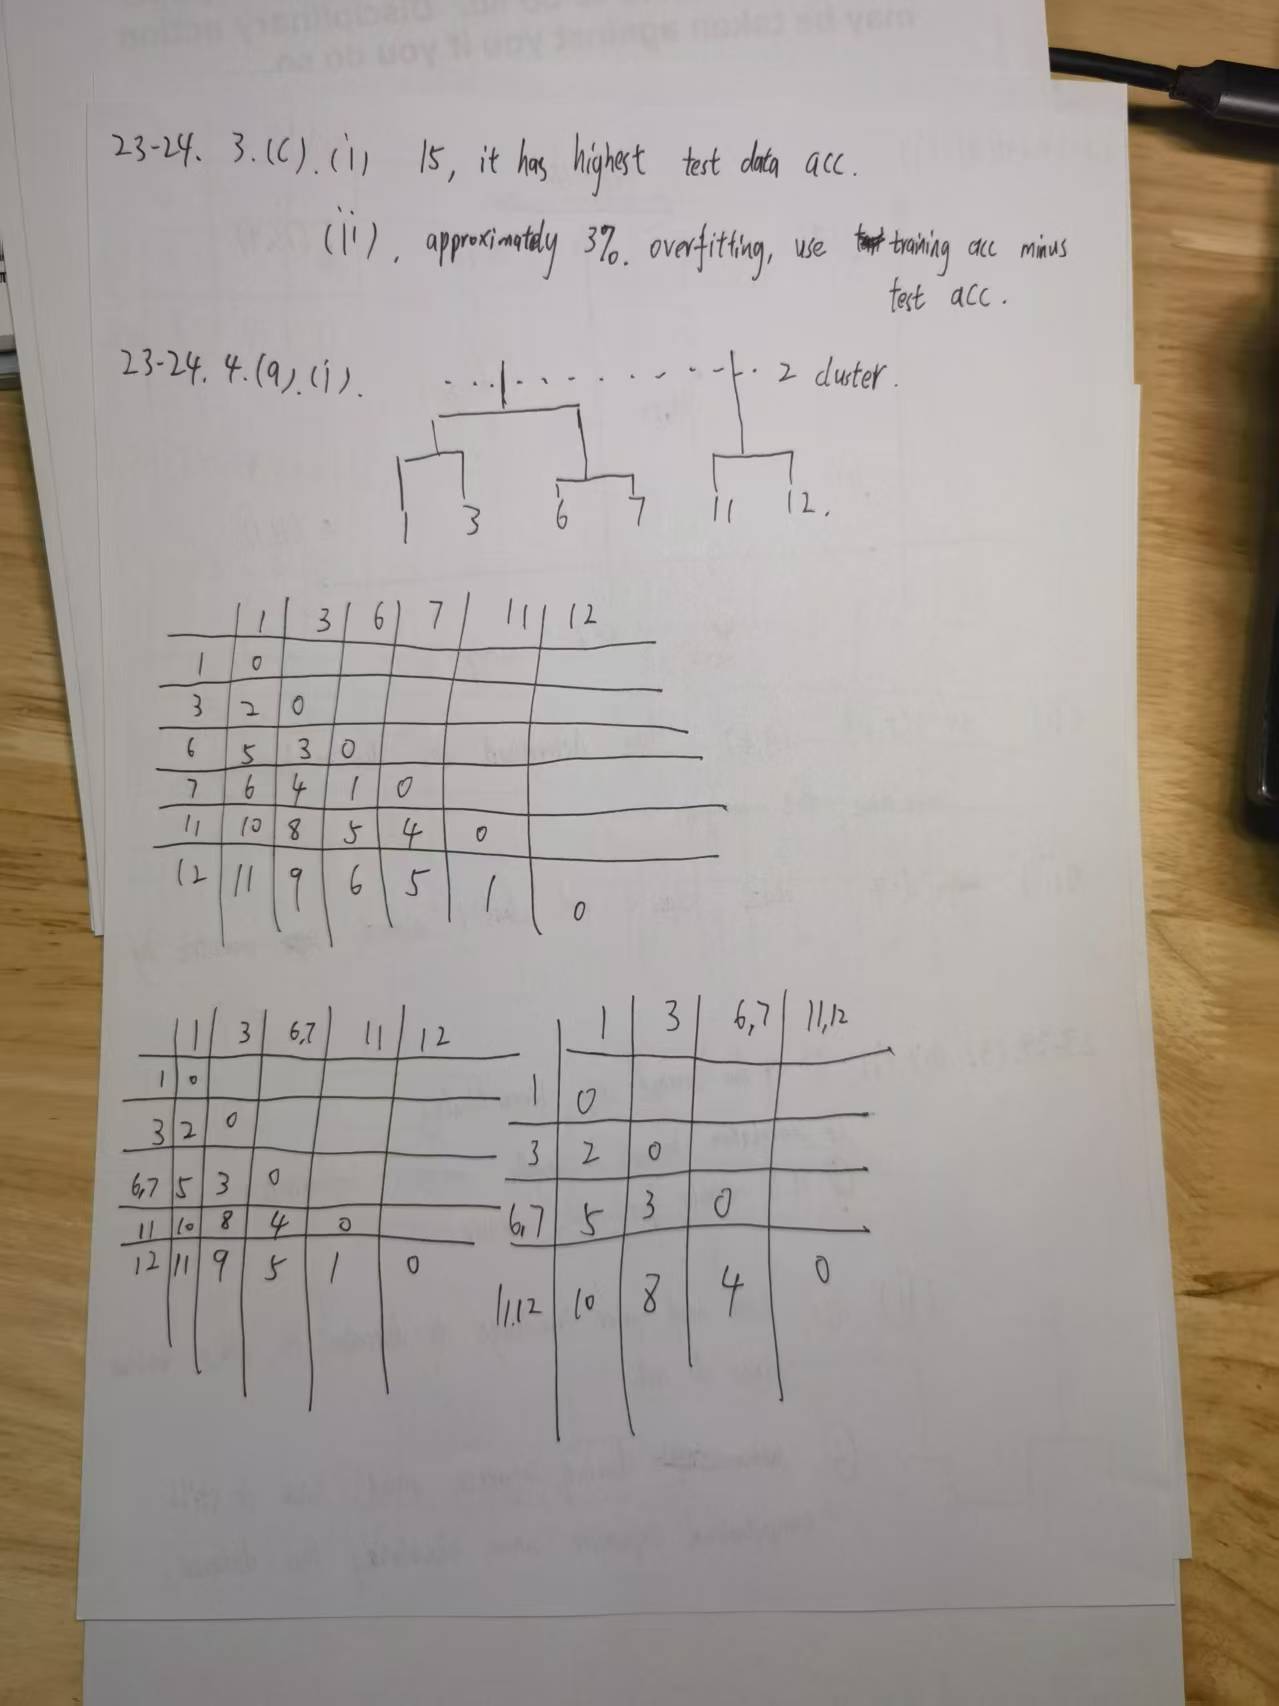 may be taken against you if you do so.
23-24. 3.(C).(i) 15, it has highest test data acc.
(ii). approximately 3%. overfitting, use training acc minus
test acc.
23-24. 4.(a).(i). 2 cluster.
1 3 6 7 11 12.
1 3 6 7 11 12
1 0
3 2 0
6 5 3 0
7 6 4 1 0
11 10 8 5 4 0
12 11 9 6 5 1 0
1 3 6,7 11 12
1 0
3 2 0
6,7 5 3 0
11 10 8 4 0
12 11 9 5 1 0
1 3 6,7 11,12
1 0
3 2 0
6,7 5 3 0
11,12 10 8 4 0